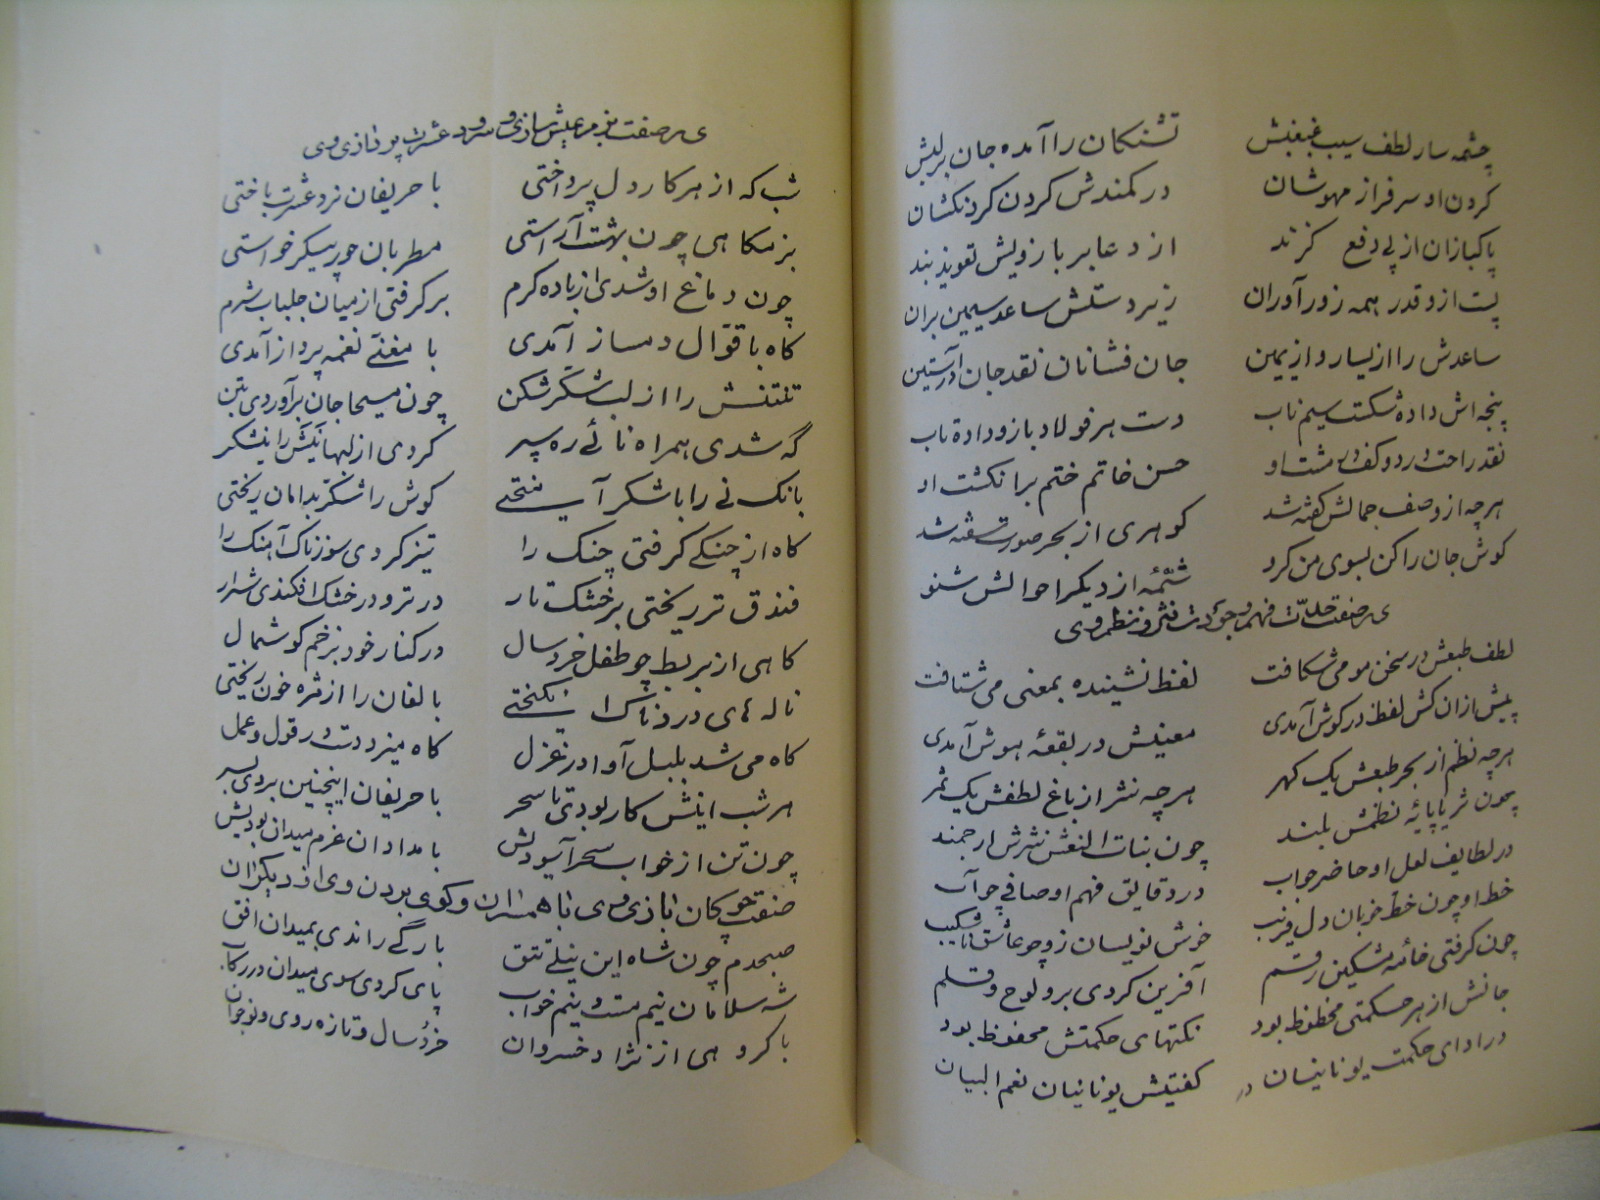 چشمه سار لطف سیب غبغبش تشنکان را آمده جان بر لبش
کردن او سرفراز مهوشان در کمندش کردن کردنکشان
پاکبازان از پی دفع کزند از دعا بر بازویش تعویذ بند
پست ازو قدر همه زورآوران زیر دستش ساعد سیمین بران
ساعدش را از یسار و از یمین جان فشانان نقد جان در آستین
پنجه اش داده شکست سیم ناب دست هر فولاد بازو داده تاب
نقد راحت در دو کف در مشت او حسن خاتم ختم بر انکشت او
هرچه از وصف جمالش کفته شد کوهری از بحر صورت سفته شد
کوش جان را کن بسوی من کرو شمّهٔ از دیکر احوالش شنو
در صفت حدّت فهم و جودت نثر و نظم وی
لطف طبعش در سخن مو می شکافت لفظ نشنیده بمعنی می شتافت
پیش از ان کش لفظ در کوش آمدی معنیش در بقعهٔ هوش آمدی
هرچه نظم از بحر طبعش یک کهر هرچه نثر از باغ لطفش یک ثمر
چون ثریا پایهٔ نظمش بلند چون بنات النعش نثرش ارجمند
در لطایف لعل او حاضر جواب در دقایق فهم او صافی چو آب
خط او چون خط خوبان دل فریب خوش نویسان زو چو عاشق ناشکیب
چون کرفتی خامه مشکین رقم آفرین کردی برو لوح و قلم
جانش از هر حکمتی محظوظ بود نکتهای حکمتش محفوظ بود
در ادای حکمت یونانیان کفتیش یونانیان نعم البیان
در صفت بزم عیش سازی و سرود عشرت پردازی وی
شب که از هر کار دل پرداختی با حریفان نرد عشرت باختی
بزمکاهی چون بهشت آراستی مطربان حور پیکر خواستی
چون دماغ او شدی از باده کرم برکرفتی از میان جلباب شرم
کاه با قوّال دمساز آمدی با مغنّی نغمه پرداز آمدی
تنتنش را از لب شکّر شکن چون مسیحا جان برآوردی بتن
که شدی همراه نائے ره سپر کردی از لبهاش نی را نیشکر
بانک نی را با شکر آمیختی کوش را شکّر بدامان ریختی
کاه از چنکی کرفتی چنک را تیز کردی سوزناک آهنک را
فندق تر ریختی بر خشک تار در تر و در خشک افکندی شرار
کاهی از بربط چو طفل خرد سال در کنار خود بزخم کوشمال
ناله های دردناک انکیختی بالغان را از مژه خون ریختی
کاه می شد بلبل آوا در غزل کاه میزد دست در قول و عمل
هر شب اینش کار بودی تا سحر با حریفان اینچنین بردی بسر
چون تن از خواب سحر آسودیش بامدادان عزم میدان بودیش
صفت چوکان بازی وی با همسران و کوی بودن وی از دیکران
صبحدم چون شاه این نیلی تتق بارگی راندی بمیدان افق
شه سلامان نیم مست و نیم خواب پای کردی سوی میدان در رکاب
با کروهی از نژاد خسروان خردسال و تازه روی و نوجوان